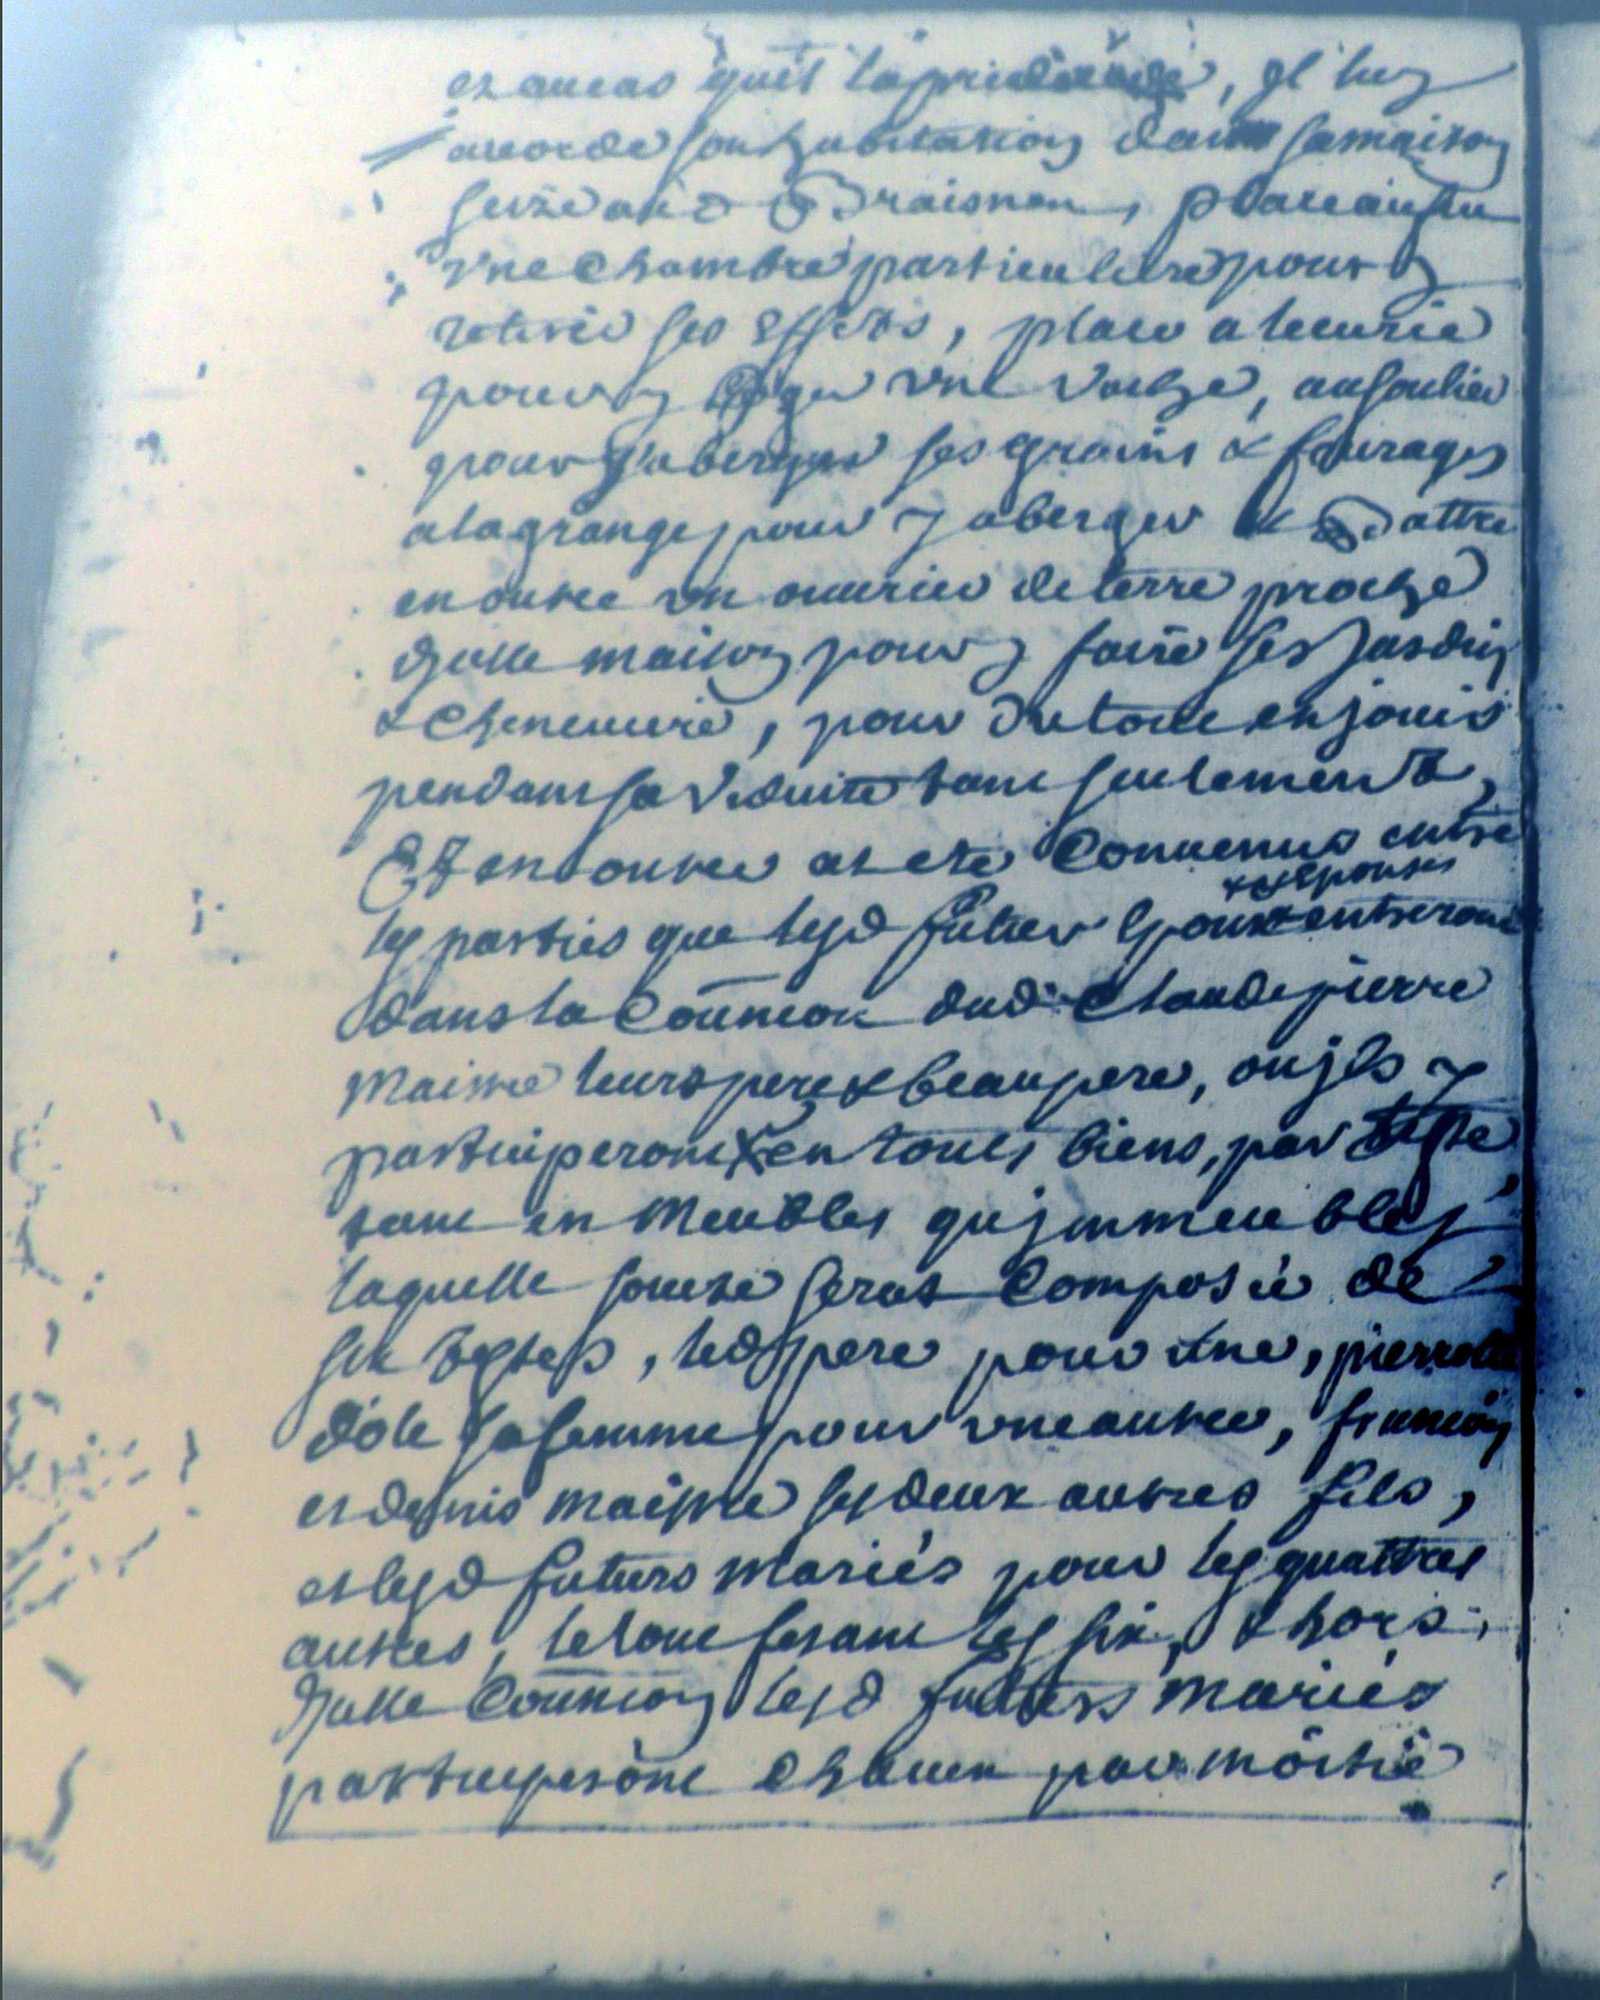 et aucas quil la predecede, Jl luy
accorde son habitation dans sa maison
size au d Braisnan, place au feu
vne Chambre particuliere pour y
retirer ses Effets, place a lecurie
pour y loger vne Vache, au soulier
pour y aberger ses grains & fourages
a la grange pour y aberger & Battre
en outre vn ouurier de terre proche
d'jcelle maison pour y faire ses Jardin
& Cheneuiere, pour du tout en jouir
pendant sa Viduité tant seulement,
Et en outre at eté Conuenus entre
les parties que lesd futur Epoux & Espouses entreront
dans la Coũnion dud Claude pierre
Maitre leurs pere & beaupere, ou jls y
participeront en touts biens, par teste
tant en Meubles qu'jmmeubles
laquelle sourte serat Composeé de
six testes, led pere pour vne, pierrette
dole sa femme pour vne autre, francois
et denis maistre ses deux autres fils,
et lesd futurs Mariés pour les quattres
autres, le tout fesant les six, & hors
d'jcelle Coũnion lesd futurs Mariés
participeront Chacun par moitié